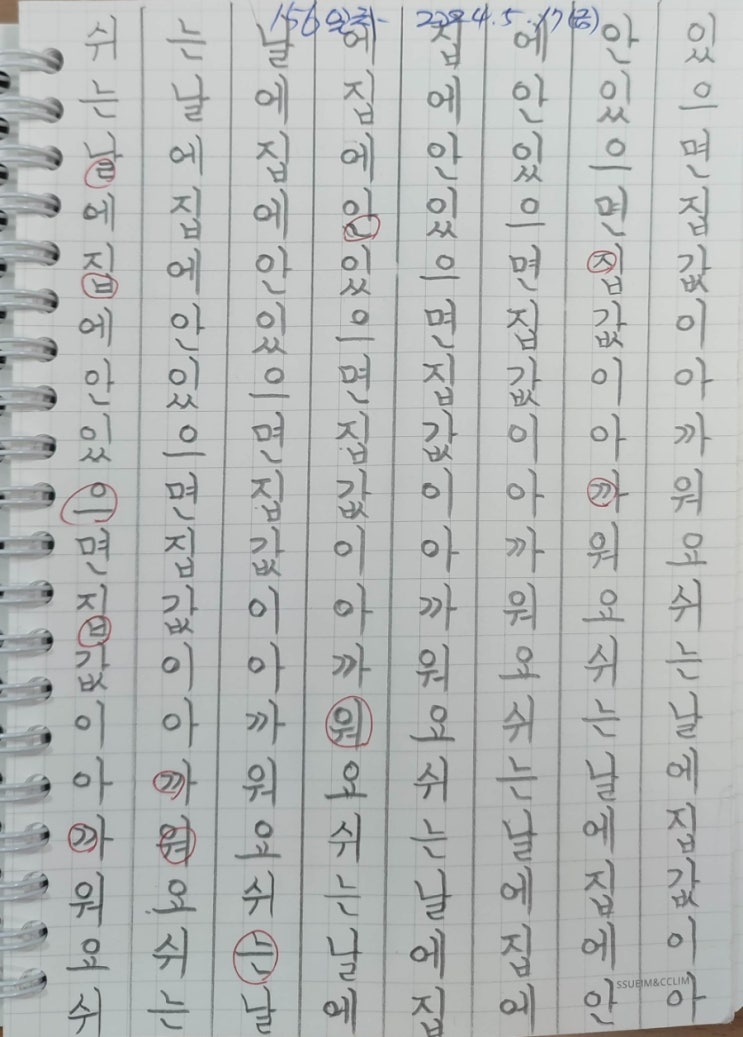 156일차- 2024.5.17(금)
쉬는날에집에안있이면집값이아까워요쉬
는날에집에안있이면집값이아까워요쉬는
날에집에안있이면집값이아까워요쉬는날
에집에안있이면집값이아까워요쉬는날에
집에안있이면집값이아까워요쉬는날에집
에안있이면집값이아까워요쉬는날에집에
안있이면집값이아까워요쉬는날에집에안
있이면집값이아까워요쉬는날에집값이아
SSUEIM&CCLIM